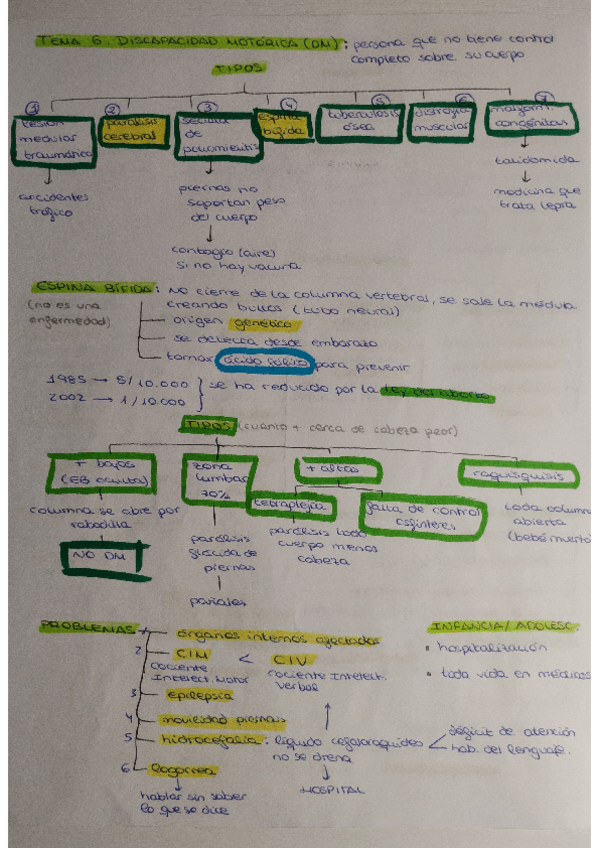 TEMA 6. DISCAPACIDAD MOTÓRICA (DM): persona que no tiene control
completo sobre su cuerpo
TIPOS
1 2 3 4 5 6 7
lesión medular traumática
parálisis cerebral
secuela de poliomielitis
espina bífida
tuberculosis ósea
distrofia muscular
malform. congénitas
accidentes tráfico
piernas no
soportan peso
del cuerpo
contagio (aire)
si no hay vacuna
talidomida
medicina que
trata lepra
ESPINA BÍFIDA: NO cierre de la columna vertebral, se sale la médula
(no es una
enfermedad)
creando bultos (tubo neural)
origen genético
se detecta desde embarazo
tomar ácido fólico para prevenir
1985 → 5/10.000
2002 → 1/10.000
se ha reducido por la ley del aborto
TIPOS (cuanto + cerca de cabeza peor)
+ bajos
(EB oculta)
columna se abre por
rabadilla
NO DM
zona
lumbar
70%
parálisis
flácida de
piernas
pañales
+ altos
tetraplejia
parálisis todo
cuerpo menos
cabeza
falta de control
esfínteres
raquisquisis
toda columna
abierta
(bebé muerto)
PROBLEMAS
1 órganos internos afectados
2 CIM < CIV
cociente
Intelect. Motor
cociente Intelect.
verbal
3 epilepsia
4 movilidad piernas
5 hidrocefalia: líquido cefalorraquídeo
no se drena
déficit de atención
hab. del lenguaje.
HOSPITAL
6 logorrea
hablar sin saber
lo que se dice
INFANCIA/ADOLESC:
• hospitalización
• toda vida en médicos